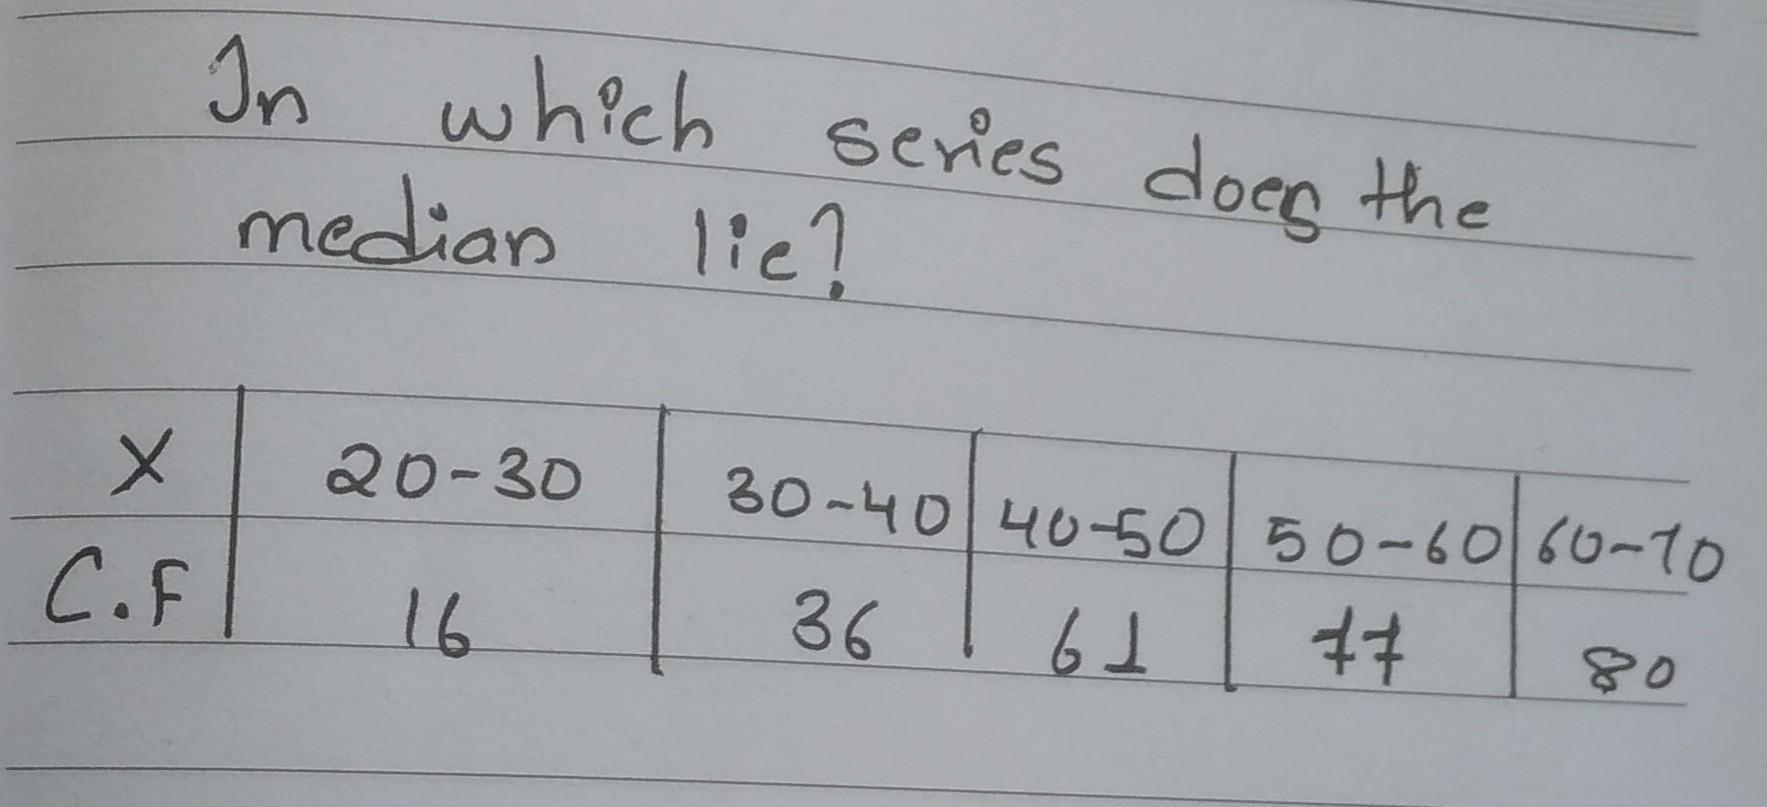 In which series does the
median lie?
X 20-30 30-40 40-50 50-60 60-70
C.F 16 36 61 77 80